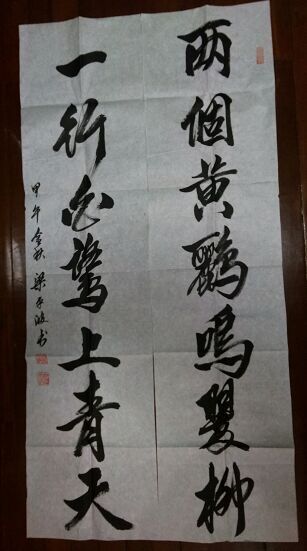 两個黄鸝鳴翠柳
一行白鷺上青天
甲午金秋 梁 波书